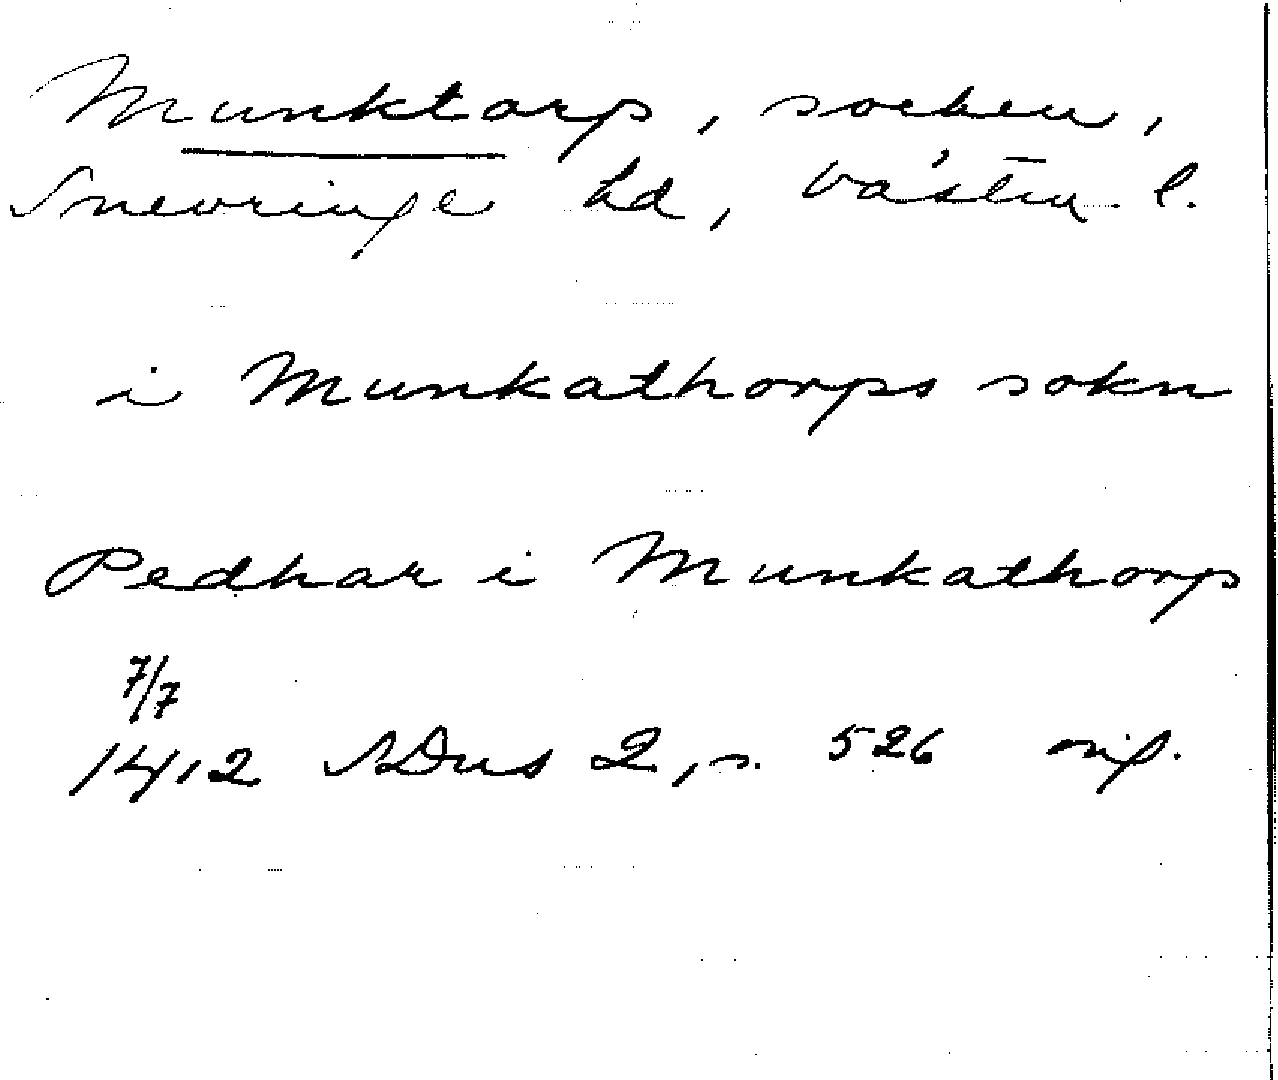 Munktorp, socken,
Snevringe hd, Västm. l.
i Munkathorps sokn
Pedhar i Munkathorp
7/7
1412 SDns 2, s. 526 orig.